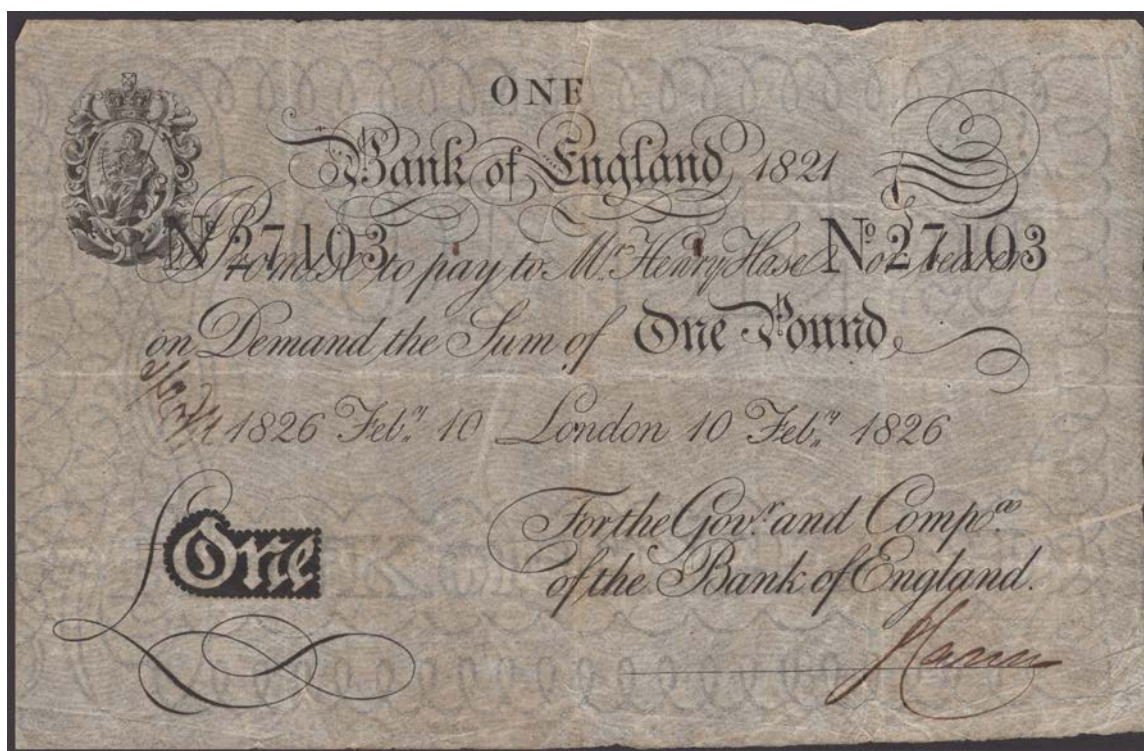 ONE
Bank of England 1821
Nº 27103 Nº 27103
I Promise to pay to Mr. Henry Hase or bearer
on Demand the Sum of One Pound
1826 Feby. 10 London 10 Feby. 1826
For the Govr. and Compa.
of the Bank of England.
£ One